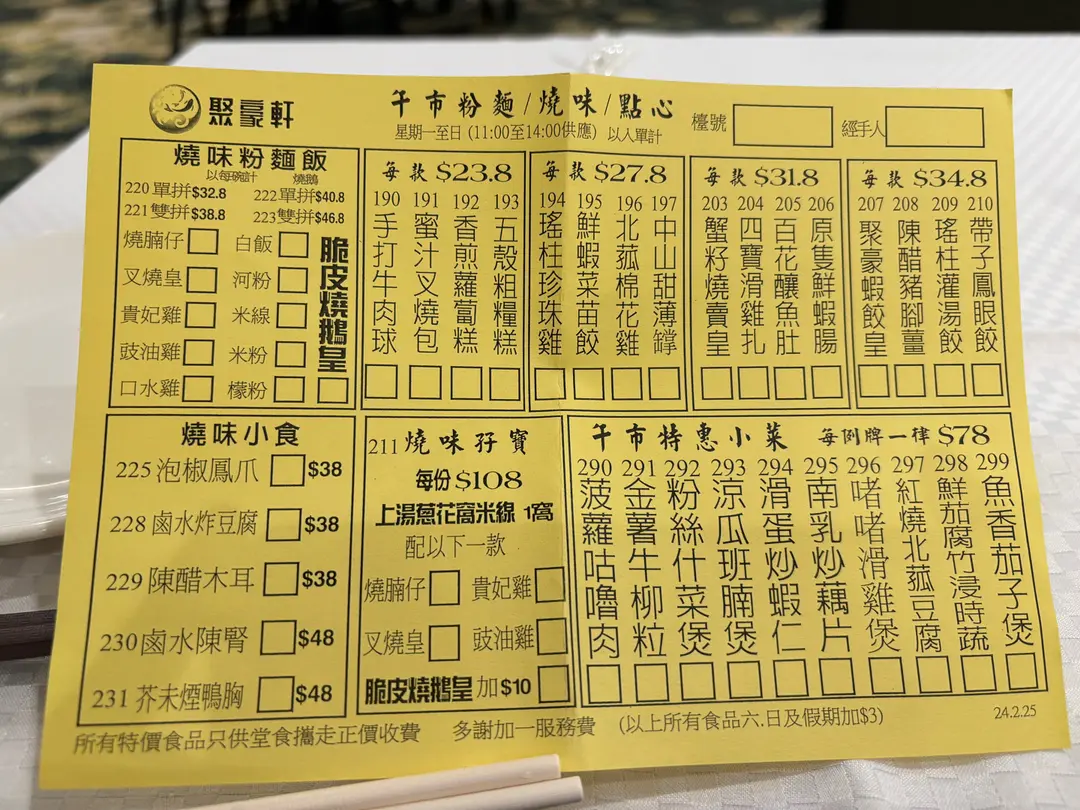 聚豪軒
午市粉麵/燒味/點心
星期一至日 (11:00至14:00供應) 以入單計
檯號
經手人
燒味粉麵飯
以每碗計 燒鵝
220單拼$32.8 222單拼$40.8
221雙拼$38.8 223雙拼$46.8
燒腩仔 白飯
叉燒皇 河粉
貴妃雞 米線
豉油雞 米粉
口水雞 檬粉
脆皮燒鵝皇
每款 $23.8
190 手打牛肉球
191 蜜汁叉燒包
192 香煎蘿蔔糕
193 五穀粗糧糕
每款 $27.8
194 瑤柱珍珠雞
195 鮮蝦菜苗餃
196 北菰棉花雞
197 中山甜薄鐣
每款 $31.8
203 蟹籽燒賣皇
204 四寶滑雞扎
205 百花釀魚肚
206 原隻鮮蝦腸
每款 $34.8
207 聚豪蝦餃皇
208 陳醋豬腳薑
209 瑤柱灌湯餃
210 帶子鳳眼餃
燒味小食
225泡椒鳳爪 $38
228鹵水炸豆腐 $38
229陳醋木耳 $38
230鹵水陳腎 $48
231芥未煙鴨胸 $48
211燒味孖寶
每份 $108
上湯蔥花窩米線 1窩
配以下一款
燒腩仔 貴妃雞
叉燒皇 豉油雞
脆皮燒鵝皇 加$10
午市特惠小菜 每例牌一律 $78
290 菠蘿咕嚕肉
291 金薯牛柳粒
292 粉絲什菜煲
293 涼瓜班腩煲
294 滑蛋炒蝦仁
295 南乳炒藕片
296 啫啫滑雞煲
297 紅燒北菰豆腐
298 鮮茄腐竹浸時蔬
299 魚香茄子煲
所有特價食品只供堂食攜走正價收費 多謝加一服務費 (以上所有食品六.日及假期加$3)
24.2.25